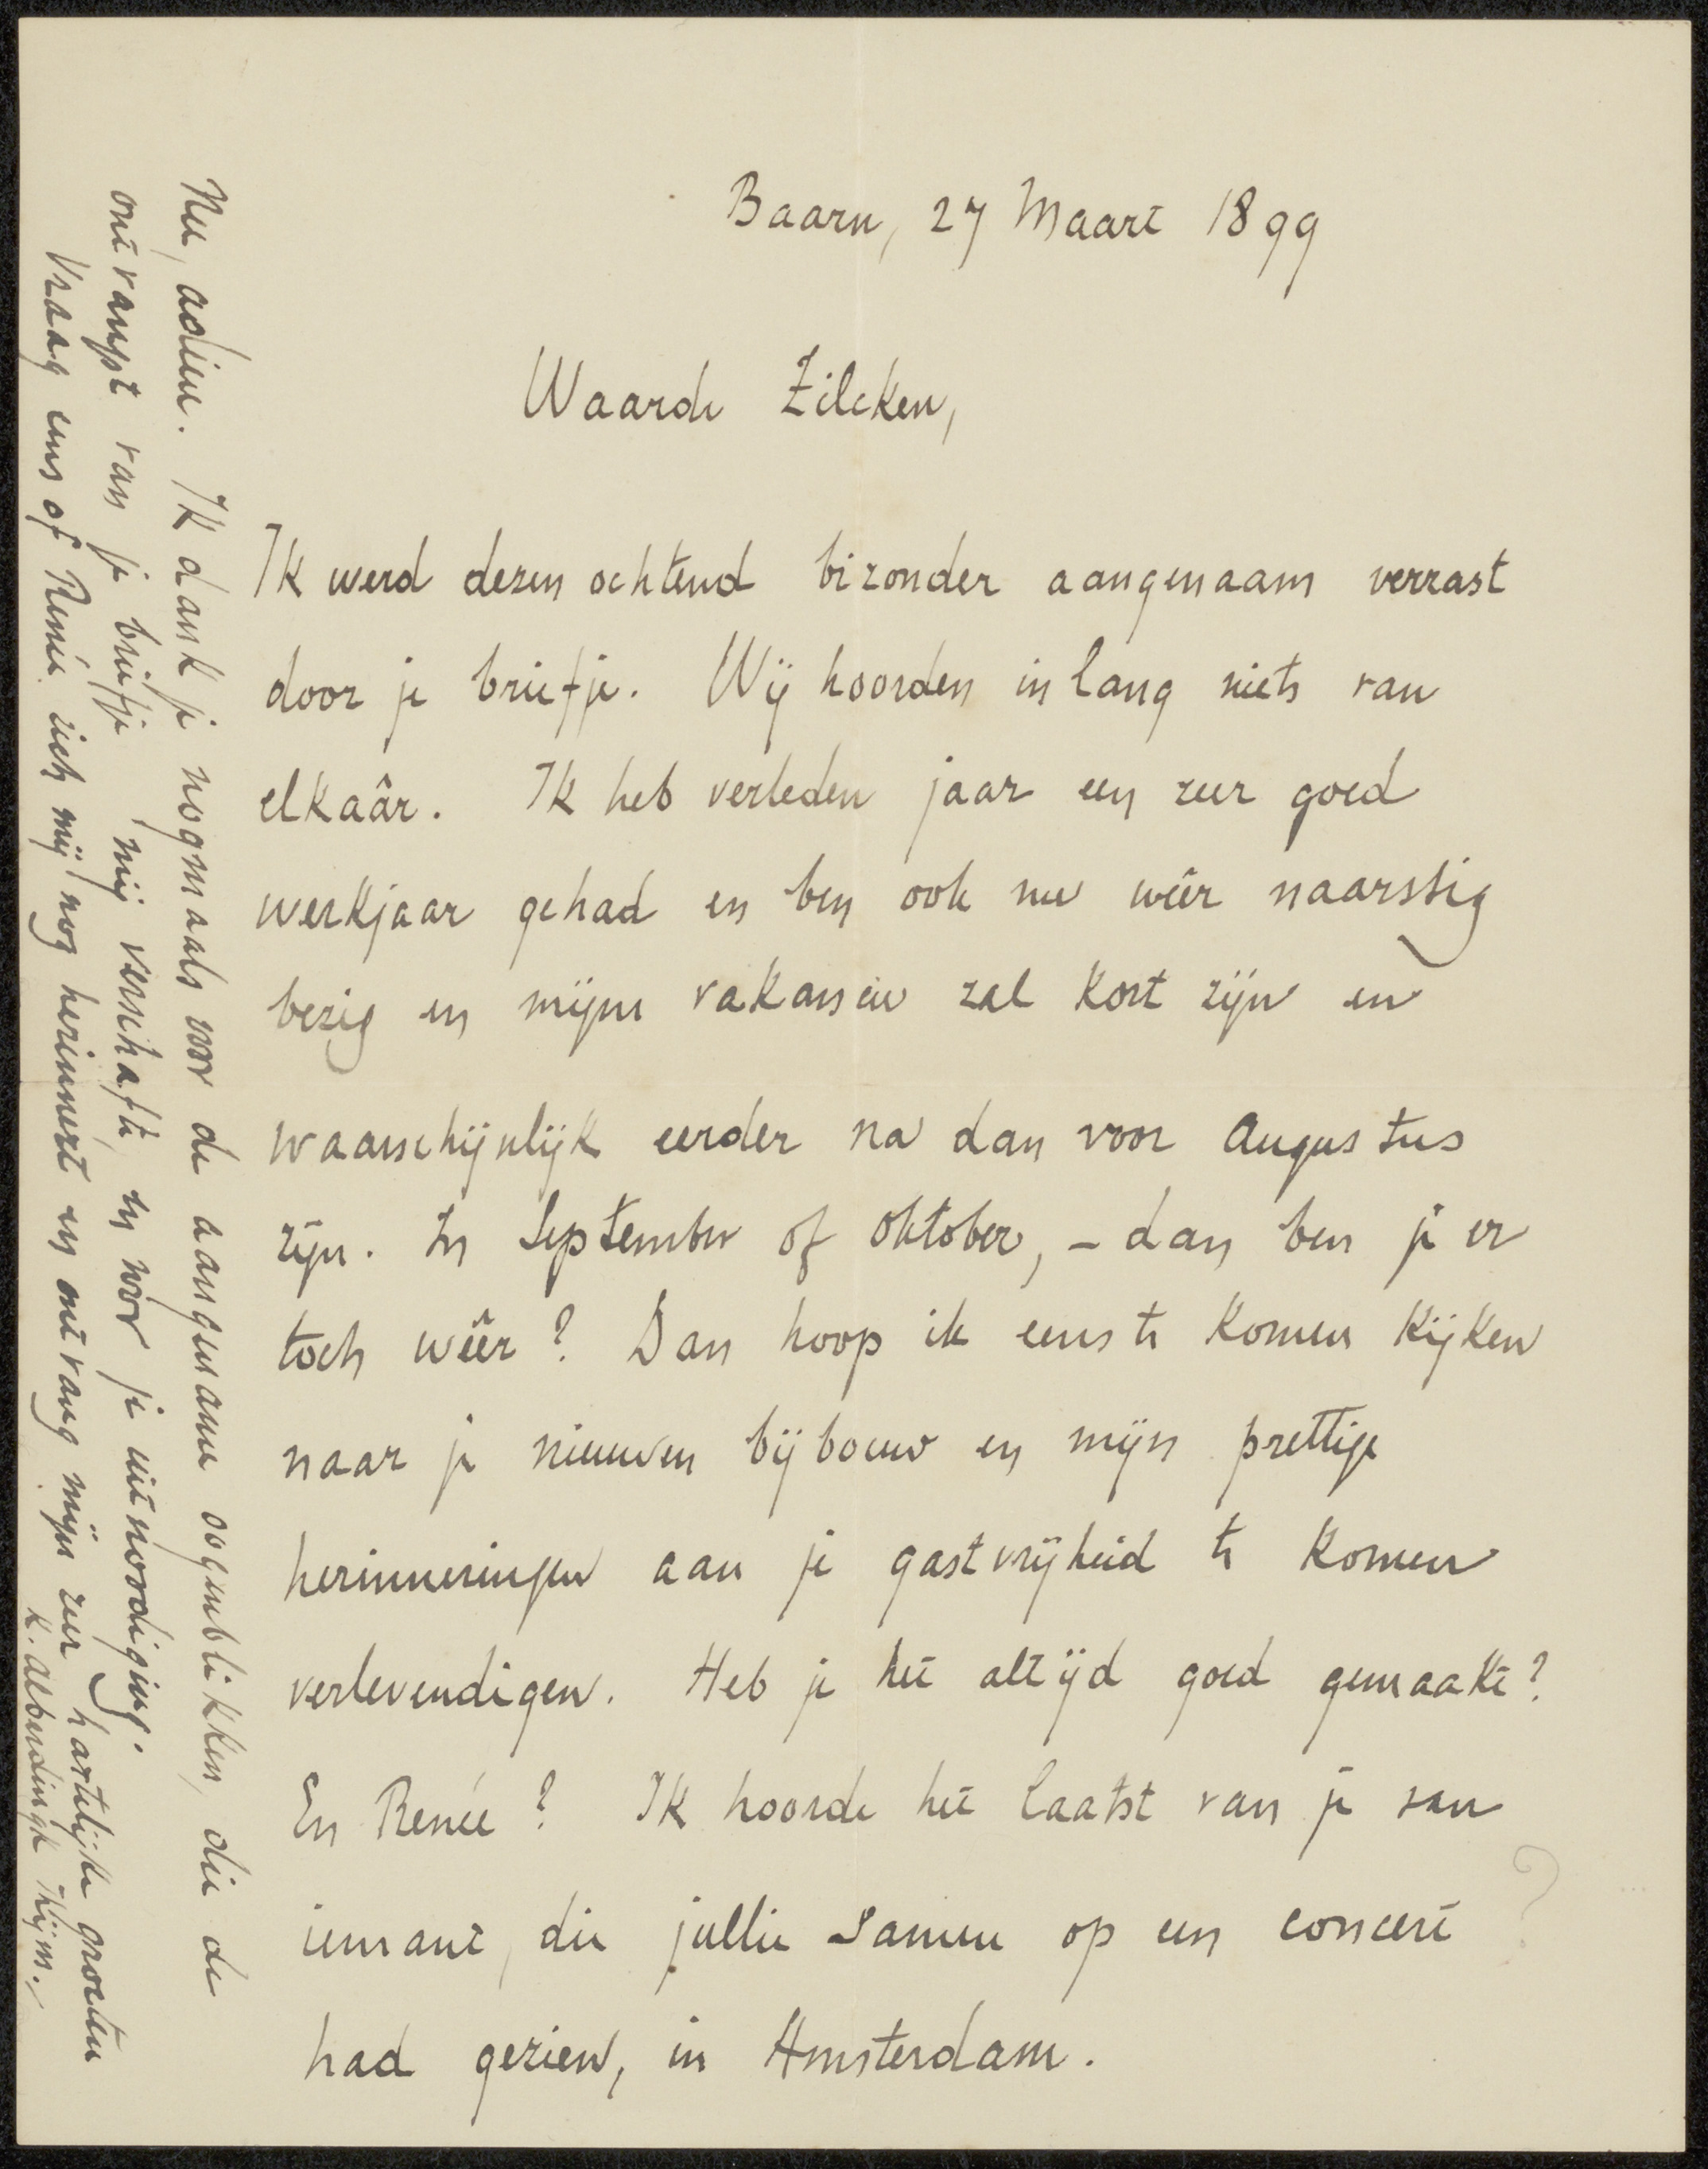 Baarn, 27 Maart 1899
Waarde Zilcken,
Ik werd dezen ochtend bizonder aangenaam verrast
door je briefje. Wij hoorden in lang niets van
elkaâr. Ik heb verleden jaar een zeer goed
werkjaar gehad en ben ook nu wêer naarstig
bezig en mijne vakansie zal kort zijn en
waarschijnlijk eerder na dan voor Augustus
zijn. In September of Oktober, – dan ben je er
toch wêer? Dan hoop ik eens te komen kijken
naar je nieuwen bijbouw en mijn prettige
herinneringen aan je gastvrijheid te komen
verlevendigen. Heb je het altijd goed gemaakt?
En Renée? Ik hoorde het laatst van je van
iemant, die jullie samen op een concert
had gezien, in Amsterdam.
Nu, adieu. Ik dank je nogmaals voor de aangename oogenblikken, die de
ontvangst van je briefje mij verschafte, en voor je uitnoodiging.
Vraag eens of Renée zich mij nog herinnert en ontvang mijn zeer hartelijke groeten
K. Alberdingk Thijm.